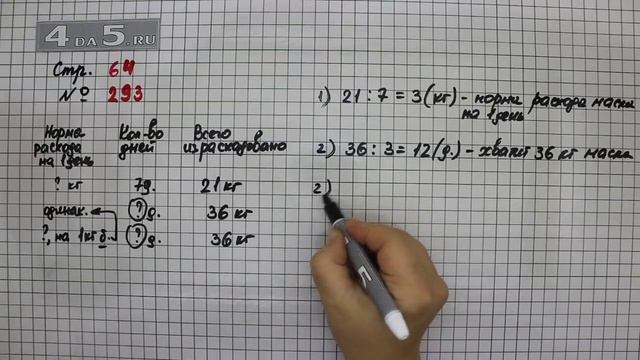 4DA5.RU
Стр. 64
№ 293
Норма расхода на 1 день
Кол-во дней
Всего израсходовано
? кг 7д. 21 кг
одинак. ? д. 36 кг
?, на 1кг б. ? д. 36 кг
1) 21 : 7 = 3 (кг) - норма расхода масла на 1 день
2) 36 : 3 = 12 (д.) - хватит 36 кг масла
2)